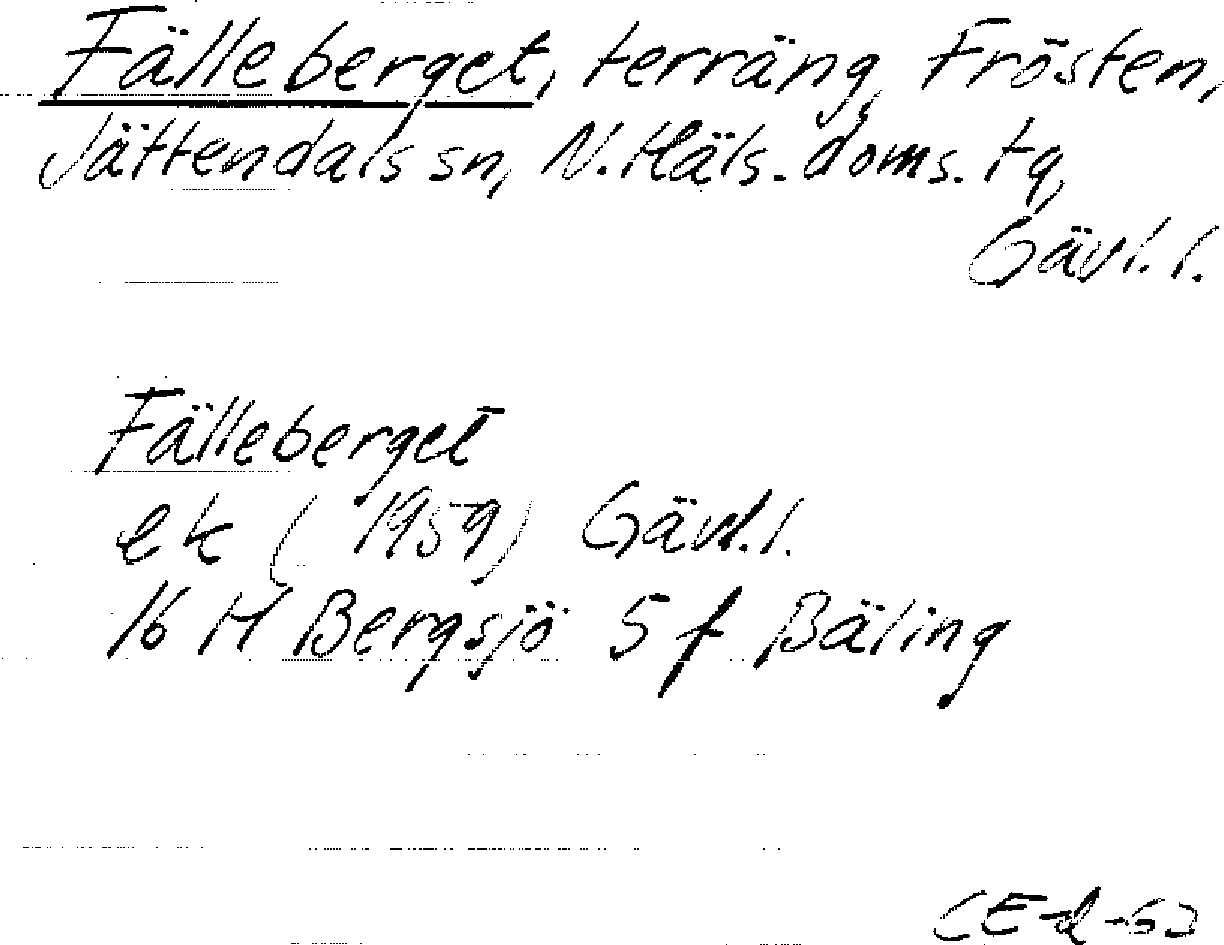 Fälleberget, terräng, Frösten,
Jättendals sn, N. Häls. doms. tg,
Gävl. l.
Fälleberget
ek (1959) Gävl. l.
16 H Bergsjö 5 f Bäling